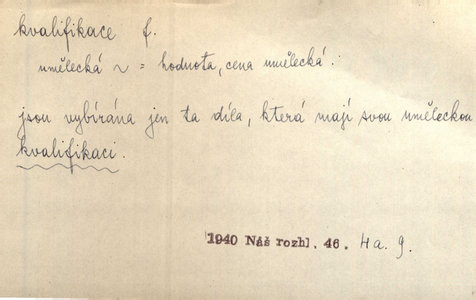 kvalifikace f.
umělecká ~ = hodnota, cena umělecká:
jsou vybírána jen ta díla, která mají svou uměleckou
kvalifikaci.
1940 Náš rozhl. 46. 4a. 9.